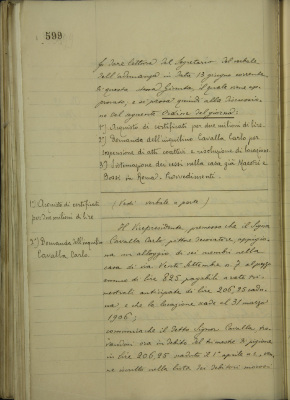 599
fa dare lettura dal Segretario del verbale
dell'adunanza in data 13 giugno corrente
di questa Giunta, il quale viene ap-
provato, e si passa quindi alla discussione
del seguente Ordine del giorno:
1°) Acquisto di certificati per due milioni di lire.
2°) Domanda dell'inquilino Cavalla Carlo per
sospensione di atti coattivi e risoluzione di locazione.
3°) Sistemazione dei cessi nella casa già Maestri e
Bossi in Roma. Provvedimenti.
1°) Acquisto di certificati
per due milioni di lire
(Vedi verbale a parte)
2°) Domanda dell'inquilino
Cavalla Carlo.
Il Vicepresidente, premesso che il Signor
Cavalla Carlo, pittore decoratore, appigio-
na un alloggio di sei membri nella
casa di via Venti Settembre n. 7 al prezzo
annuo di lire 825 pagabile a rate tri-
mestrali anticipate di lire 206,25 cadu-
na e che la locazione scade al 31 marzo
1906;
comunica che il detto Signor Cavalla, tro-
vandosi ora in debito del trimestre di pigione
in lire 206,25 scaduto il 1° aprile
venne inscritto nella lista dei debitori morosi